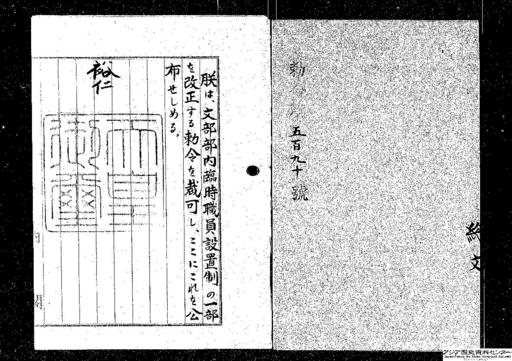 勅
五百九十號
総
文
朕は、文部部内臨時職員設置制の一部
を改正する勅令を裁可し、ここにこれを公
布せしめる。
裕仁
天皇御璽
アジア歴史資料センター